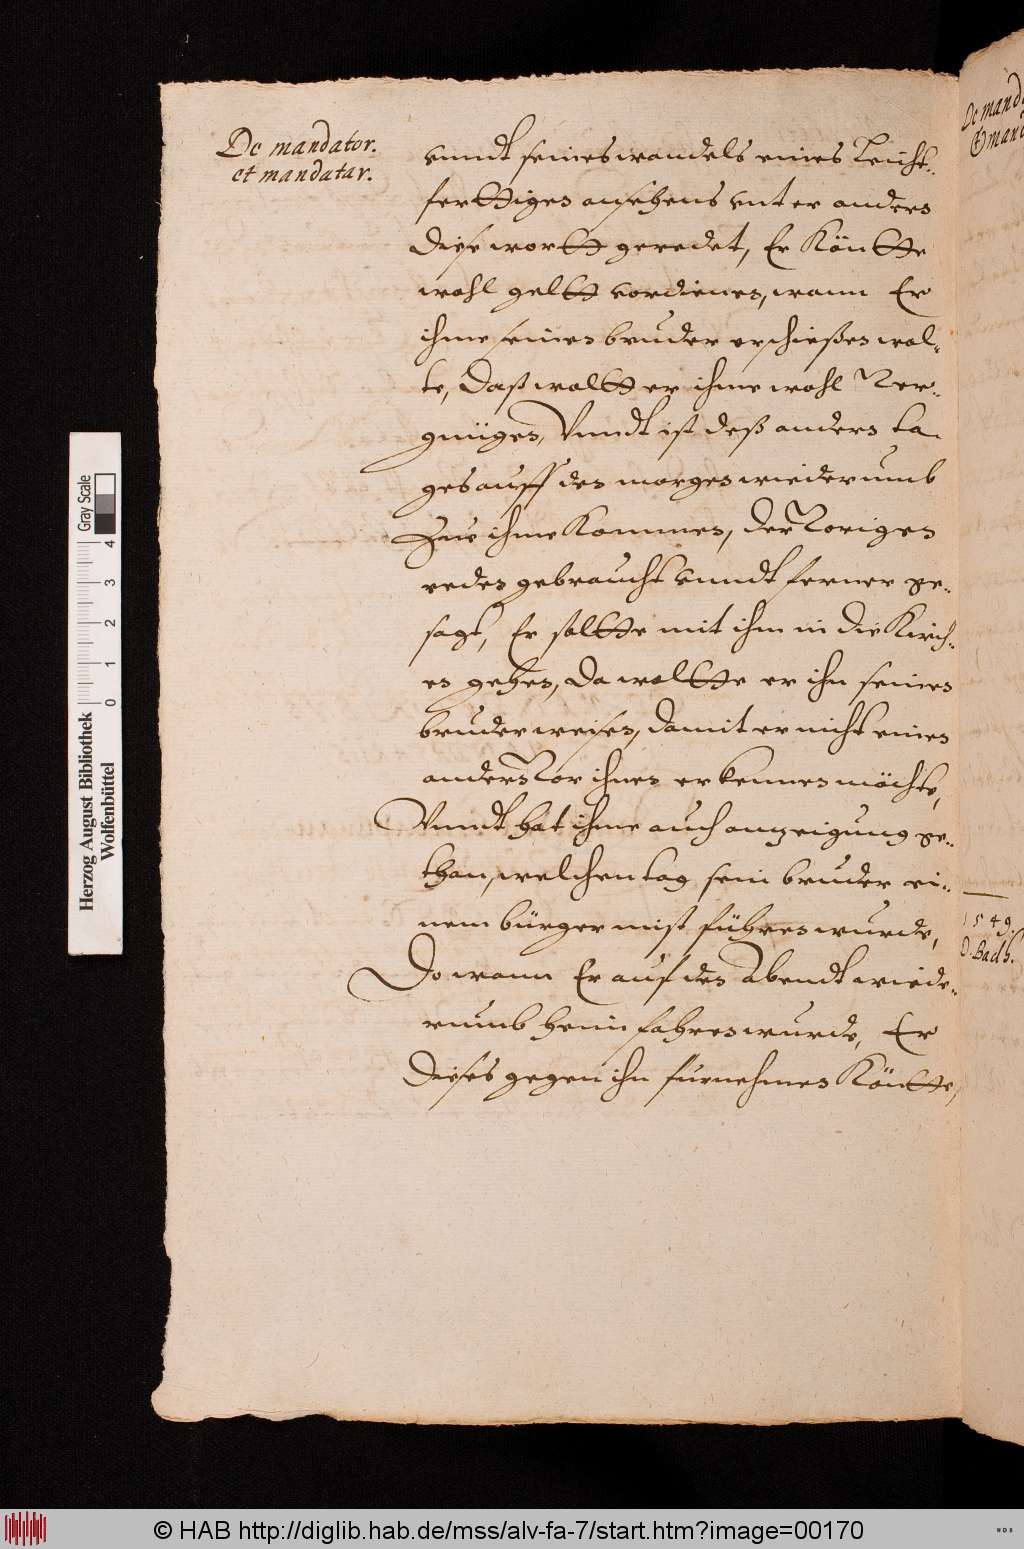 De mandator.
et mandatar.
vnndt seines wandels eines Leicht„
ferttiges ansehens vnter anders
diese wortt geredet, Er Köntte
wohl geltt vordienen, wann Er
ihme seinen bruder erschießen wol„
te, Daß woltt er ihme wohl Ver„
gnügen, Vnndt ist deß anders ta„
ges auff den morgen wiederumb
Zue ihme Kommen, der Vorigen
reden gebraucht vnndt ferner ge„
sagt, Er soltte mit ihm in die Kirch„
en gehen, Da woltte er ihn seinen
bruder weisen, damit er nicht einen
anders Vor ihnen erkennen möchte,
Vnndt hat ihme auch anzeigung ge„
than, welchen tag sein bruder ei„
nem bürger mist führen wurde,
Do wann Er auf den Abendt wiede„
rumb heim fahren wurde, Er
dieses gegen ihn fürnehmen Köntte,
De mand
et mand
1549.
D. Bach.
Herzog August Bibliothek
Wolfenbüttel
0 1 2 3 4
Gray Scale
© HAB http://diglib.hab.de/mss/alv-fa-7/start.htm?image=00170